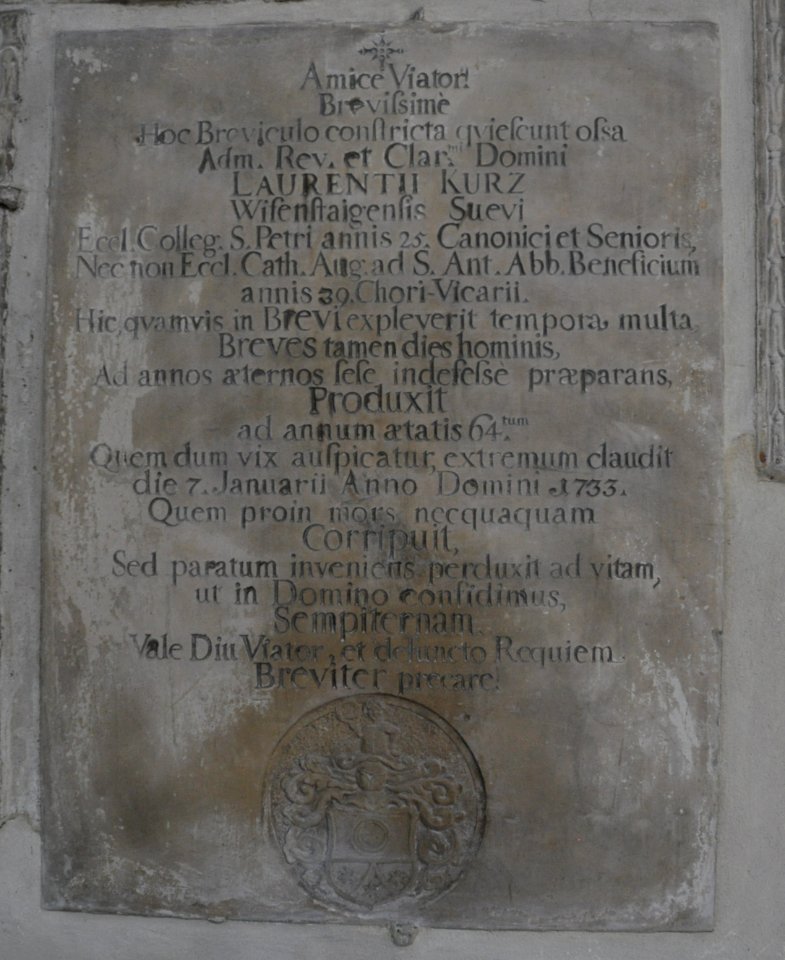 Amice Viator!
Breviſsimè
Hoc Breviculo conſtricta qvieſcunt oſsa
Adm. Rev. et Clar.mi Domini
LAURENTII KURZ
Wiſenſtaigenſis Suevi
Eccl. Colleg. S. Petri annis 25. Canonici et Senioris,
Nec non Eccl. Cath. Aug. ad S. Ant. Abb. Beneficium
annis 39. Chori-Vicarii.
Hic, qvamvis in Brevi expleverit tempora multa,
Breves tamen dies hominis,
Ad annos æternos ſeſe indefeſse præparans,
Produxit
ad annum ætatis 64.tum
Quem dum vix auſpicatur, extremum claudit
die 7. Januarii Anno Domini 1733.
Quem proin mors necquaquam
Corripuit,
Sed paratum inveniens perduxit ad vitam,
ut in Domino confidimus,
Sempiternam.
Vale Diu Viator, et defuncto Requiem
Breviter precare!